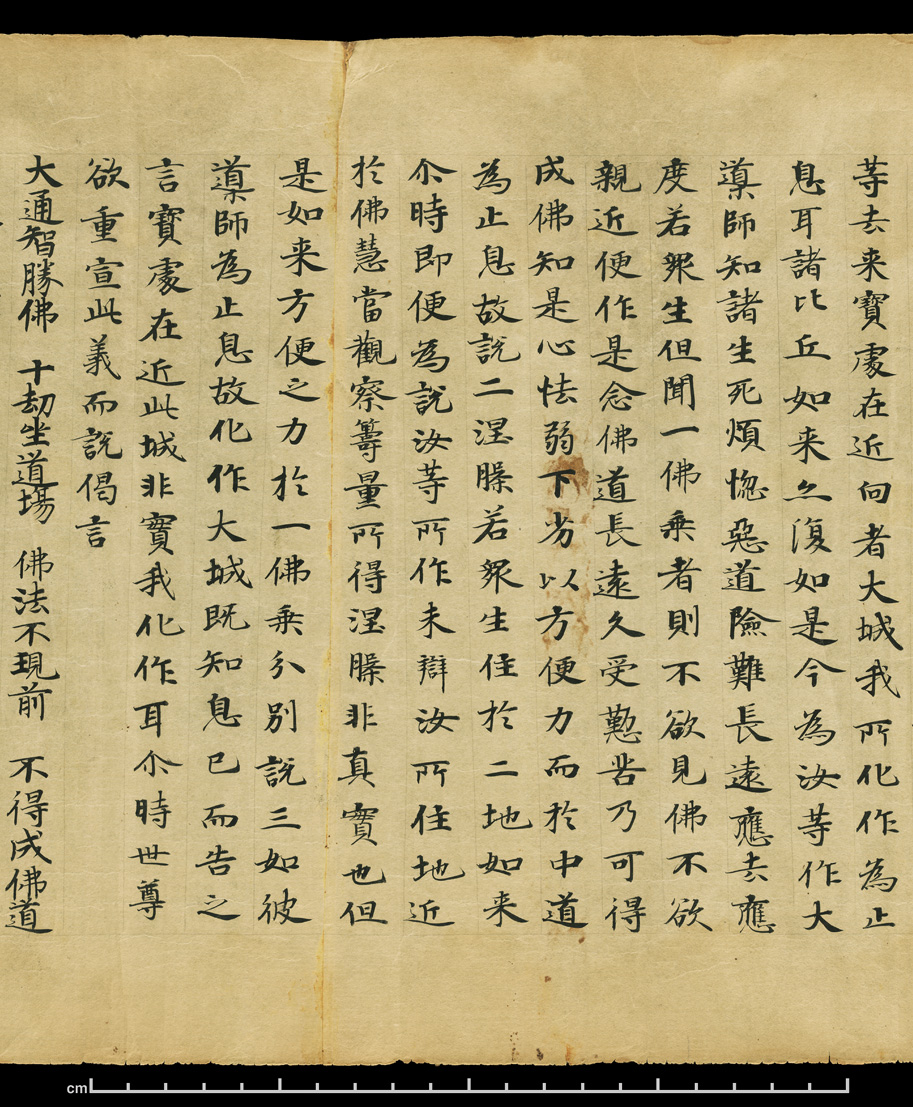 等去来寶處在近向者大城我所化作為止
息耳諸比丘如来亦復如是今為汝等作大
導師知諸生死煩惚惡道險難長遠應去應
度若衆生但聞一佛乗者則不欲見佛不欲
親近便作是念佛道長遠久受懃苦乃可得
成佛知是心怯弱下劣以方便力而於中道
為止息故說二涅槃若衆生住於二地如来
尒時即便為說汝等所作未辯汝所住地近
於佛慧當觀察籌量所得涅槃非真實也但
是如来方便之力於一佛乗分別說三如彼
導師為止息故化作大城既知息已而告之
言寶處在近此城非實我化作耳尒時世尊
欲重宣此義而說偈言
大通智勝佛　十劫坐道場　佛法不現前　不得成佛道